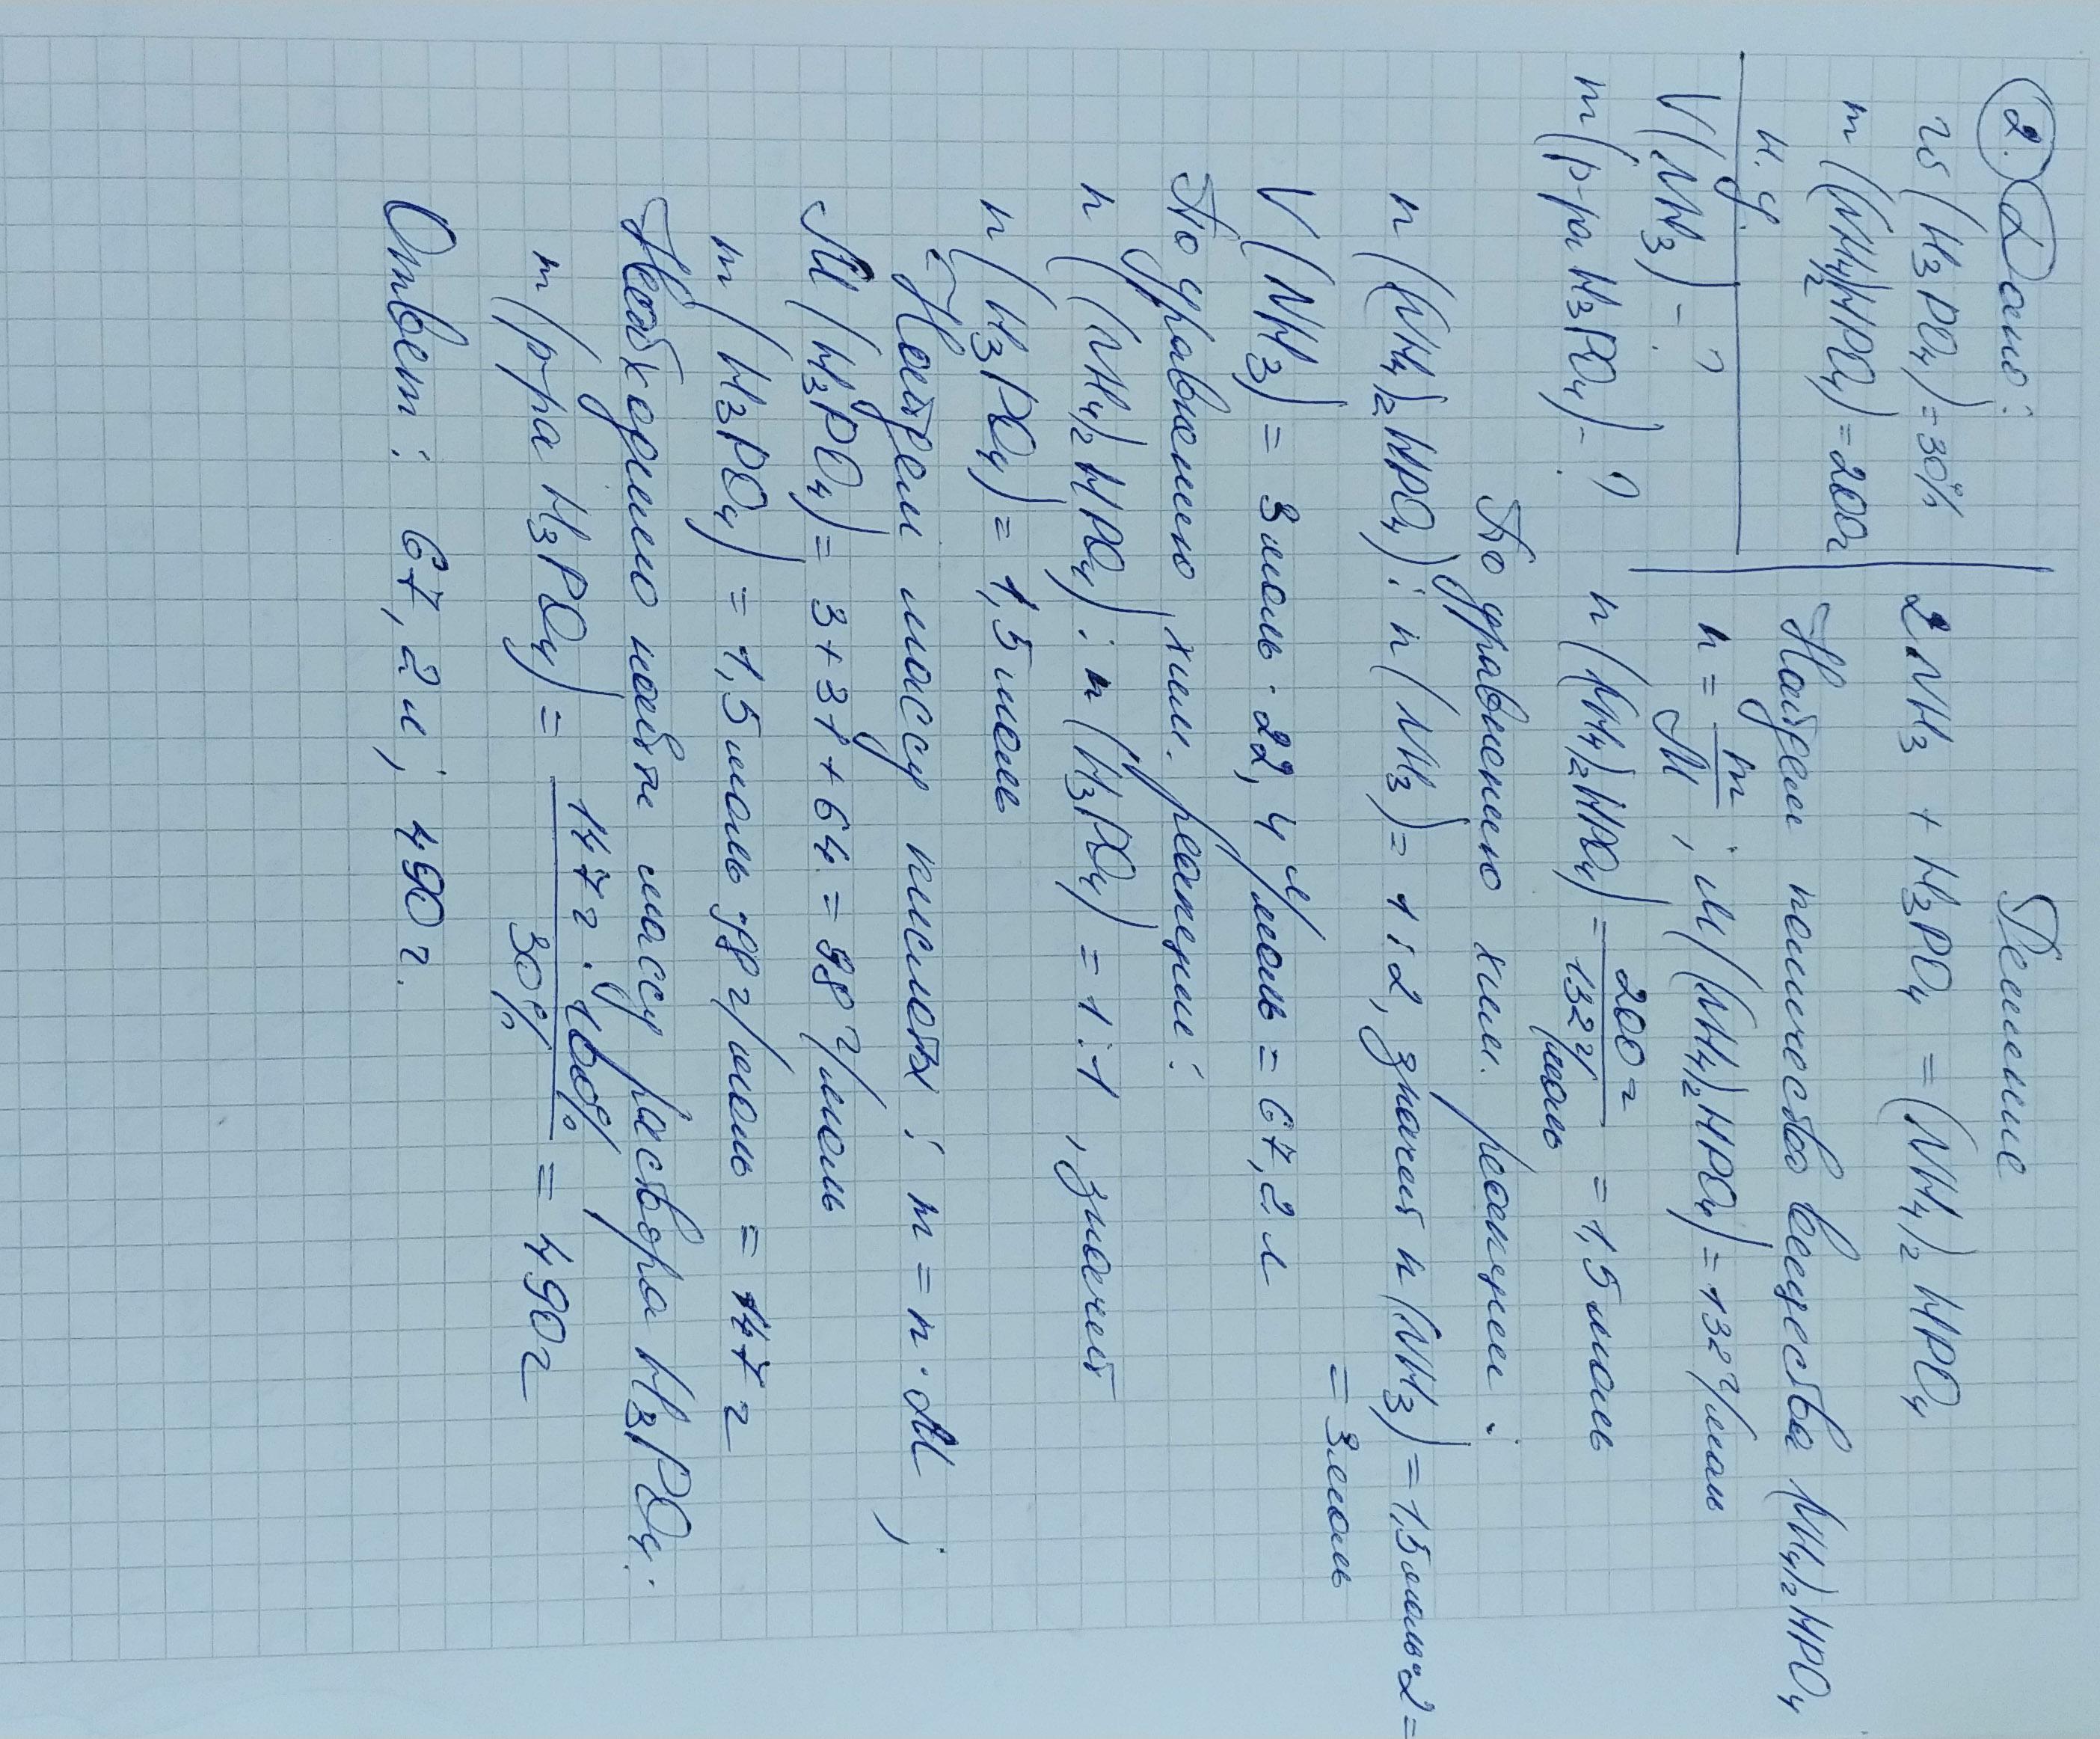 2. Дано:
w(H₃PO₄)=30%
m((NH₄)₂HPO₄)=200г
н.у.
V(NH₃)-?
m(р-ра H₃PO₄)-?
Решение
2NH₃ + H₃PO₄ = (NH₄)₂HPO₄
Найдем количество вещества (NH₄)₂HPO₄
n = m/M ; M((NH₄)₂HPO₄) = 132 г/моль
n((NH₄)₂HPO₄) = 200г/132г/моль = 1,5 моль
По уравнению хим. реакции:
n((NH₄)₂HPO₄) : n(NH₃) = 1:2, значит n(NH₃) = 1,5моль·2 =
= 3моль
V(NH₃) = 3моль · 22,4 л/моль = 67,2 л
По уравнению хим. реакции:
n((NH₄)₂HPO₄) : n(H₃PO₄) = 1:1, значит
n(H₃PO₄) = 1,5 моль
Найдем массу кислоты: m = n·M ;
M(H₃PO₄) = 3+31+64 = 98 г/моль
m(H₃PO₄) = 1,5 моль · 98 г/моль = 147 г
Необходимо найти массу раствора H₃PO₄:
m(р-ра H₃PO₄) = 147г · 100%/30% = 490г
Ответ: 67,2 л; 490 г.